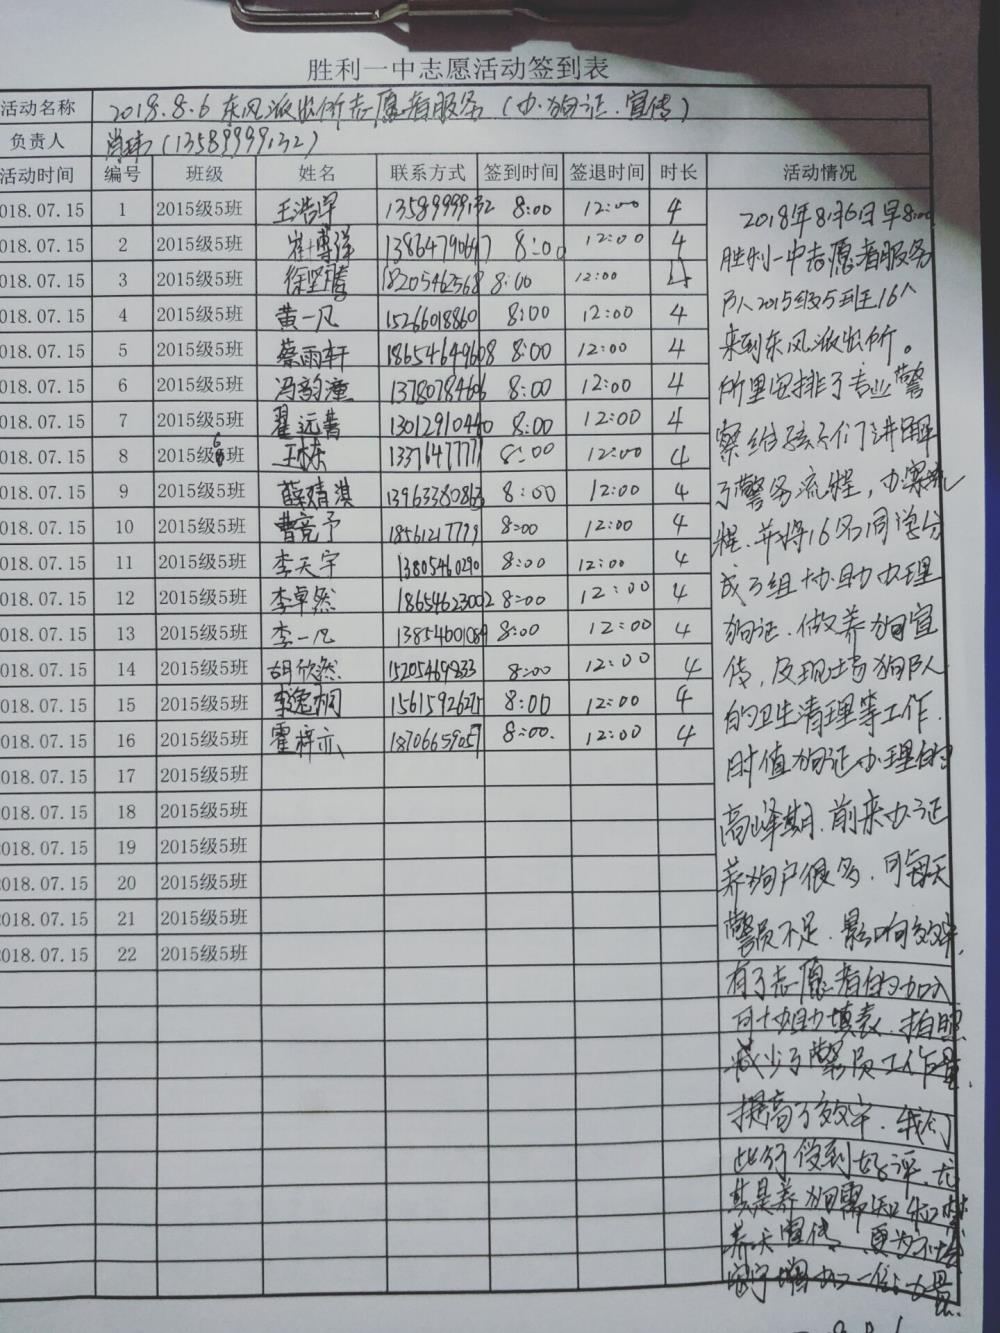 胜利一中志愿活动签到表
活动名称 2018.8.6 东风派出所志愿者服务(办狗证.宣传)
负责人 肖玮(13589999132)
活动时间 编号 班级 姓名 联系方式 签到时间 签退时间 时长 活动情况
018.07.15 1 2015级5班 王浩宇 13589999132 8:00 12:00 4
018.07.15 2 2015级5班 崔博洋 13864790647 8:00 12:00 4
018.07.15 3 2015级5班 徐坚腾 18205462568 8:00 12:00 4
018.07.15 4 2015级5班 黄一凡 15266018860 8:00 12:00 4
018.07.15 5 2015级5班 蔡雨轩 18654649608 8:00 12:00 4
018.07.15 6 2015级5班 冯韵潼 13780784606 8:00 12:00 4
018.07.15 7 2015级5班 翟远普 13012910440 8:00 12:00 4
018.07.15 8 2015级6班 王 1337647777 8:00 12:00 4
018.07.15 9 2015级5班 薛婧淇 13963380863 8:00 12:00 4
018.07.15 10 2015级5班 曹竞予 18561217799 8:00 12:00 4
018.07.15 11 2015级5班 李天宇 13805460290 8:00 12:00 4
018.07.15 12 2015级5班 李卓然 18654623002 8:00 12:00 4
018.07.15 13 2015级5班 李一凡 13854601089 8:00 12:00 4
018.07.15 14 2015级5班 胡欣然 15205469833 8:00 12:00 4
018.07.15 15 2015级5班 李逸桐 15615926275 8:00 12:00 4
018.07.15 16 2015级5班 霍梓亦 18706659057 8:00. 12:00 4
018.07.15 17 2015级5班
018.07.15 18 2015级5班
018.07.15 19 2015级5班
018.07.15 20 2015级5班
018.07.15 21 2015级5班
018.07.15 22 2015级5班
2018年8月6日早8:00
胜利一中志愿者服务
队2015级5班16人
来到东风派出所。
所里安排了专业警
察给孩子们讲解
了警务流程,办案流
程.并将16名同学分
成了组协助办理
狗证.做养狗宣
传,及现场狗队
的卫生清理等工作.
时值狗证办理的
高峰期.前来办证
养狗户很多.可每天
警员不足.影响效率.
有了志愿者的加入
可协助填表.拍照
减少了警员工作量.
提高了效率.我们
此行受到好评.尤
其是养狗需知和禁
养犬宣传.更为
安宁增加一份力量.